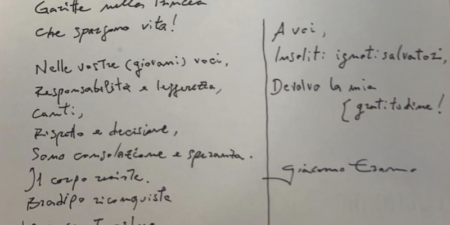 che spargono vita!
Nelle vostre (giovani) voci,
Responsabilità e leggerezza,
canti,
Rispetto e decisione,
Sono consolazione e speranza.
Il corpo resiste.
Bradipo riconquista
A voi,
Insoliti ignoti salvatori,
Devolvo la mia
{gratitudine!
Giacomo